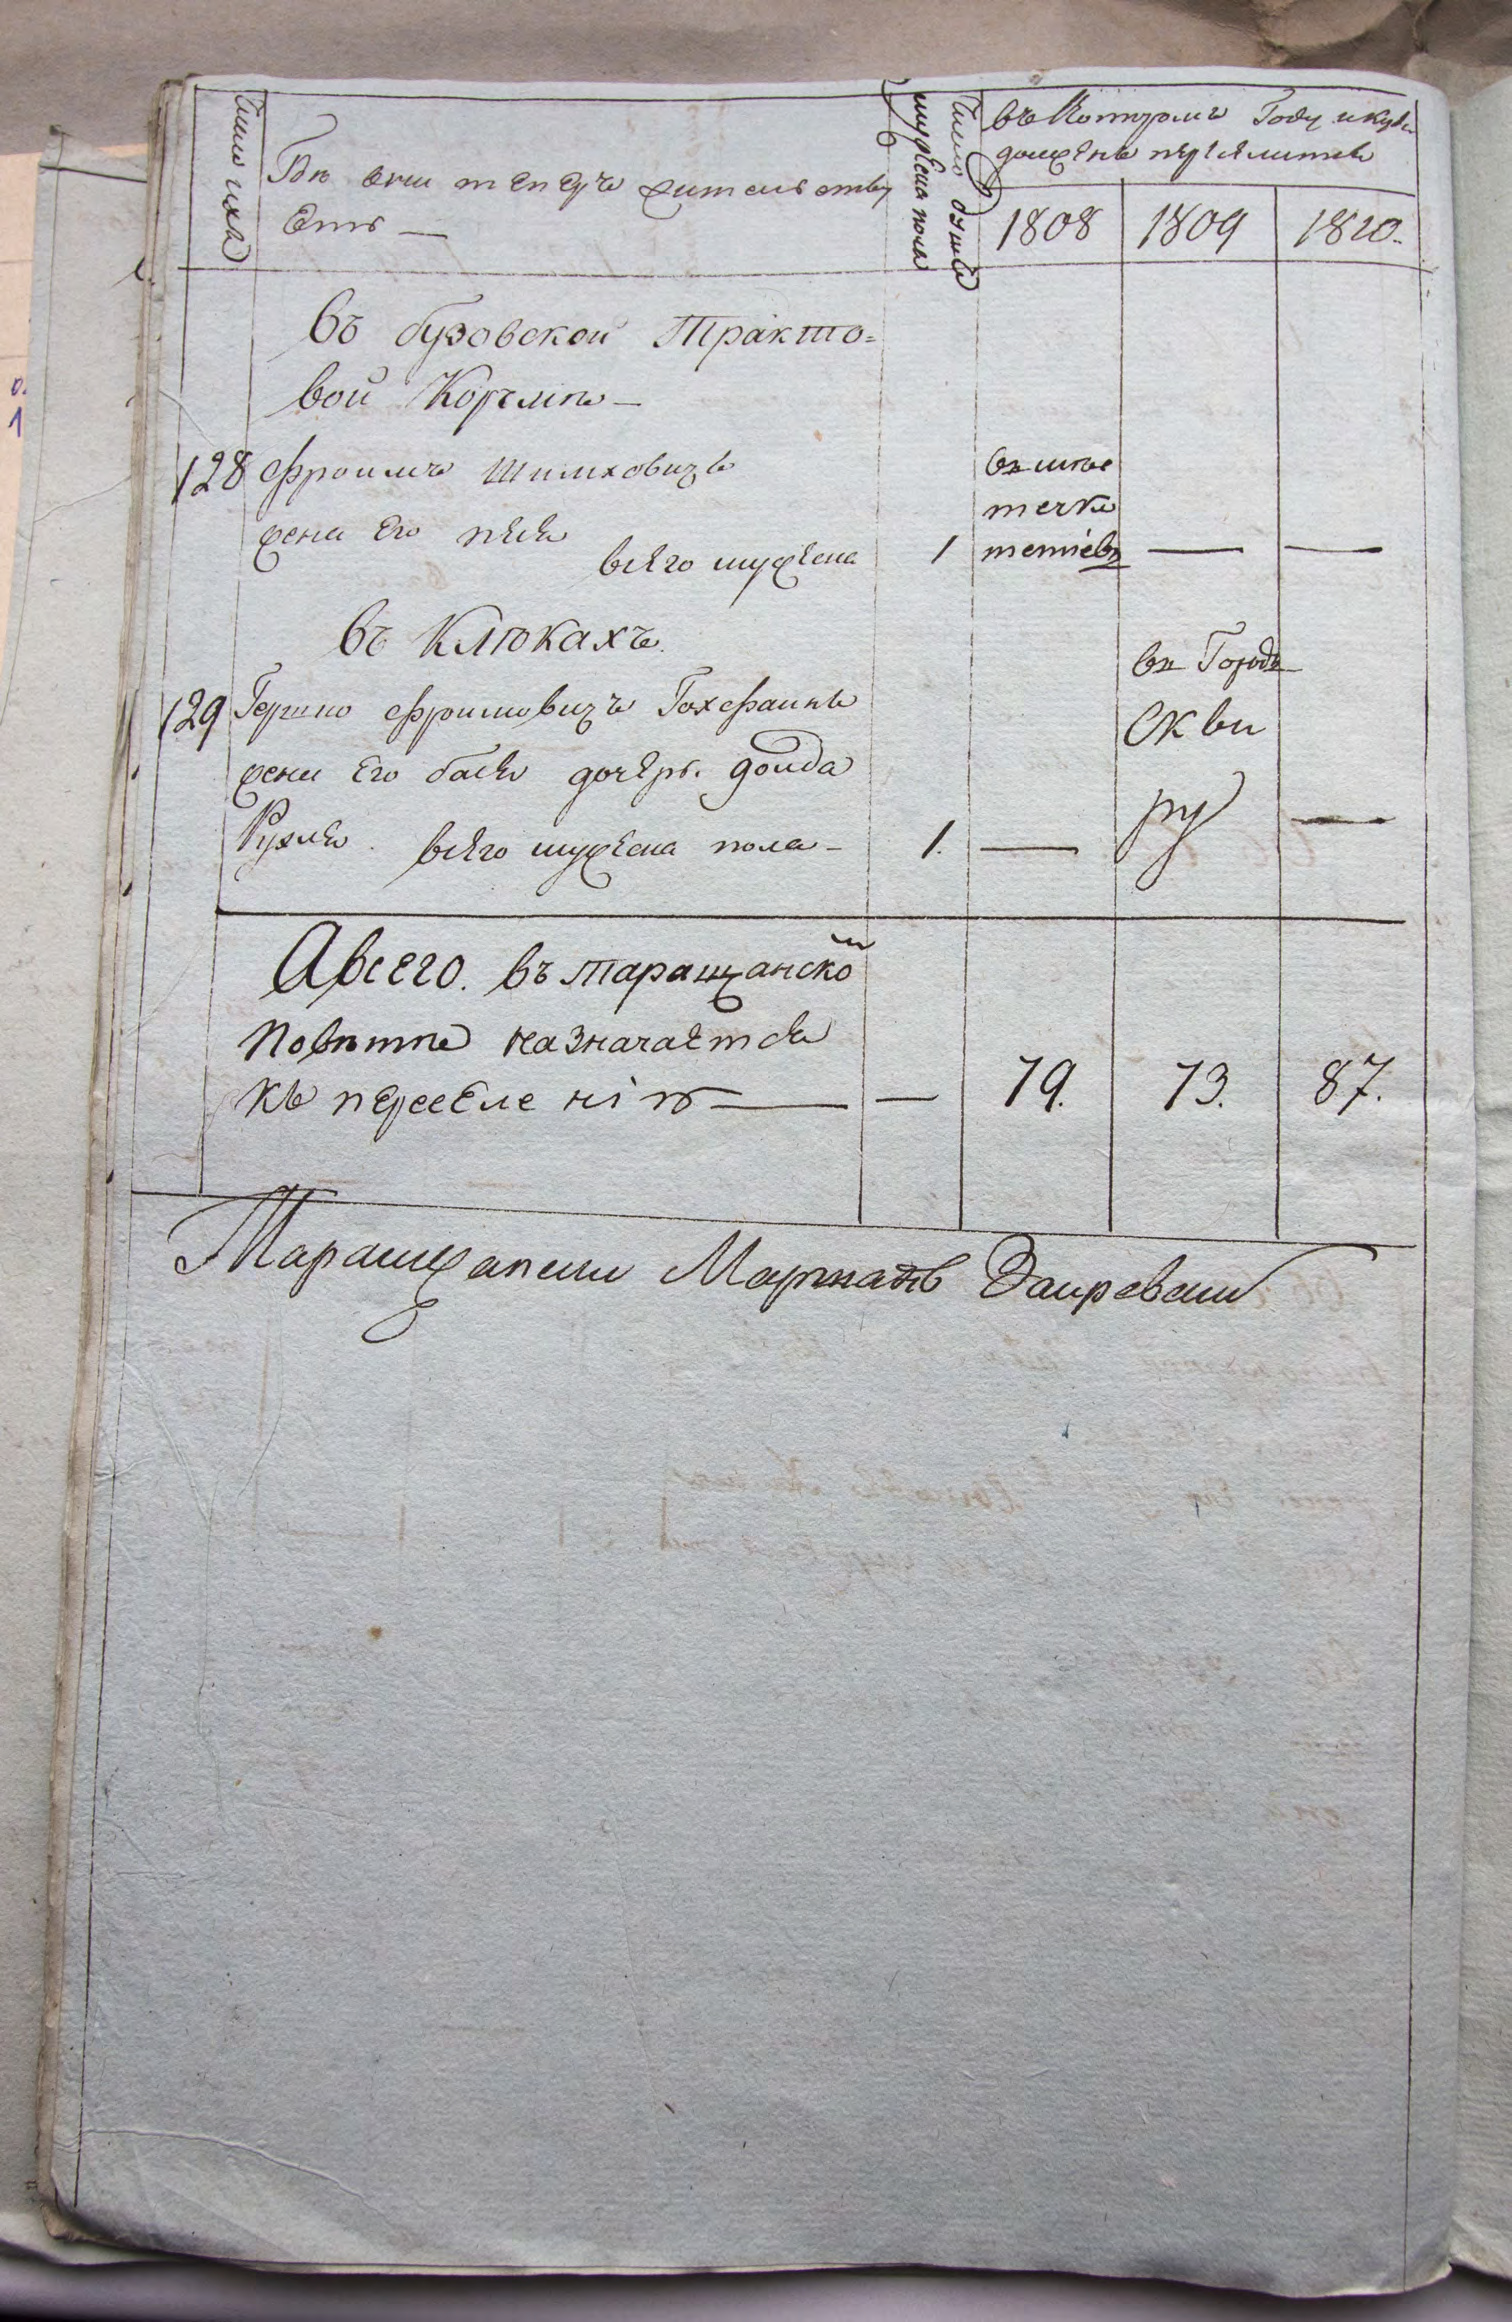 Число ихъ
Гдѣ они теперъ жительству
етъ —
Число душъ
мужеска пола
въ Которомъ Году и куда
долженъ переселится
1808 1809 1810.
Въ бузовской Тракто=
вой Корчмѣ —
128 Фроимъ Шмулковичъ
жена Его песя
всего мужеска 1
въ мѣс
течка
тетіевъ — —
въ Клюкахъ.
129 Гершко Фроимовичъ Гохфаинъ
жена Его бася дочерь доида
Рухля. всего мужеска пола — 1. —
въ Городъ
Скви
ру —
А всего. въ таращанской
Повѣтѣ назначается
къ переселенію — — 79. 73. 87.
Таращанский